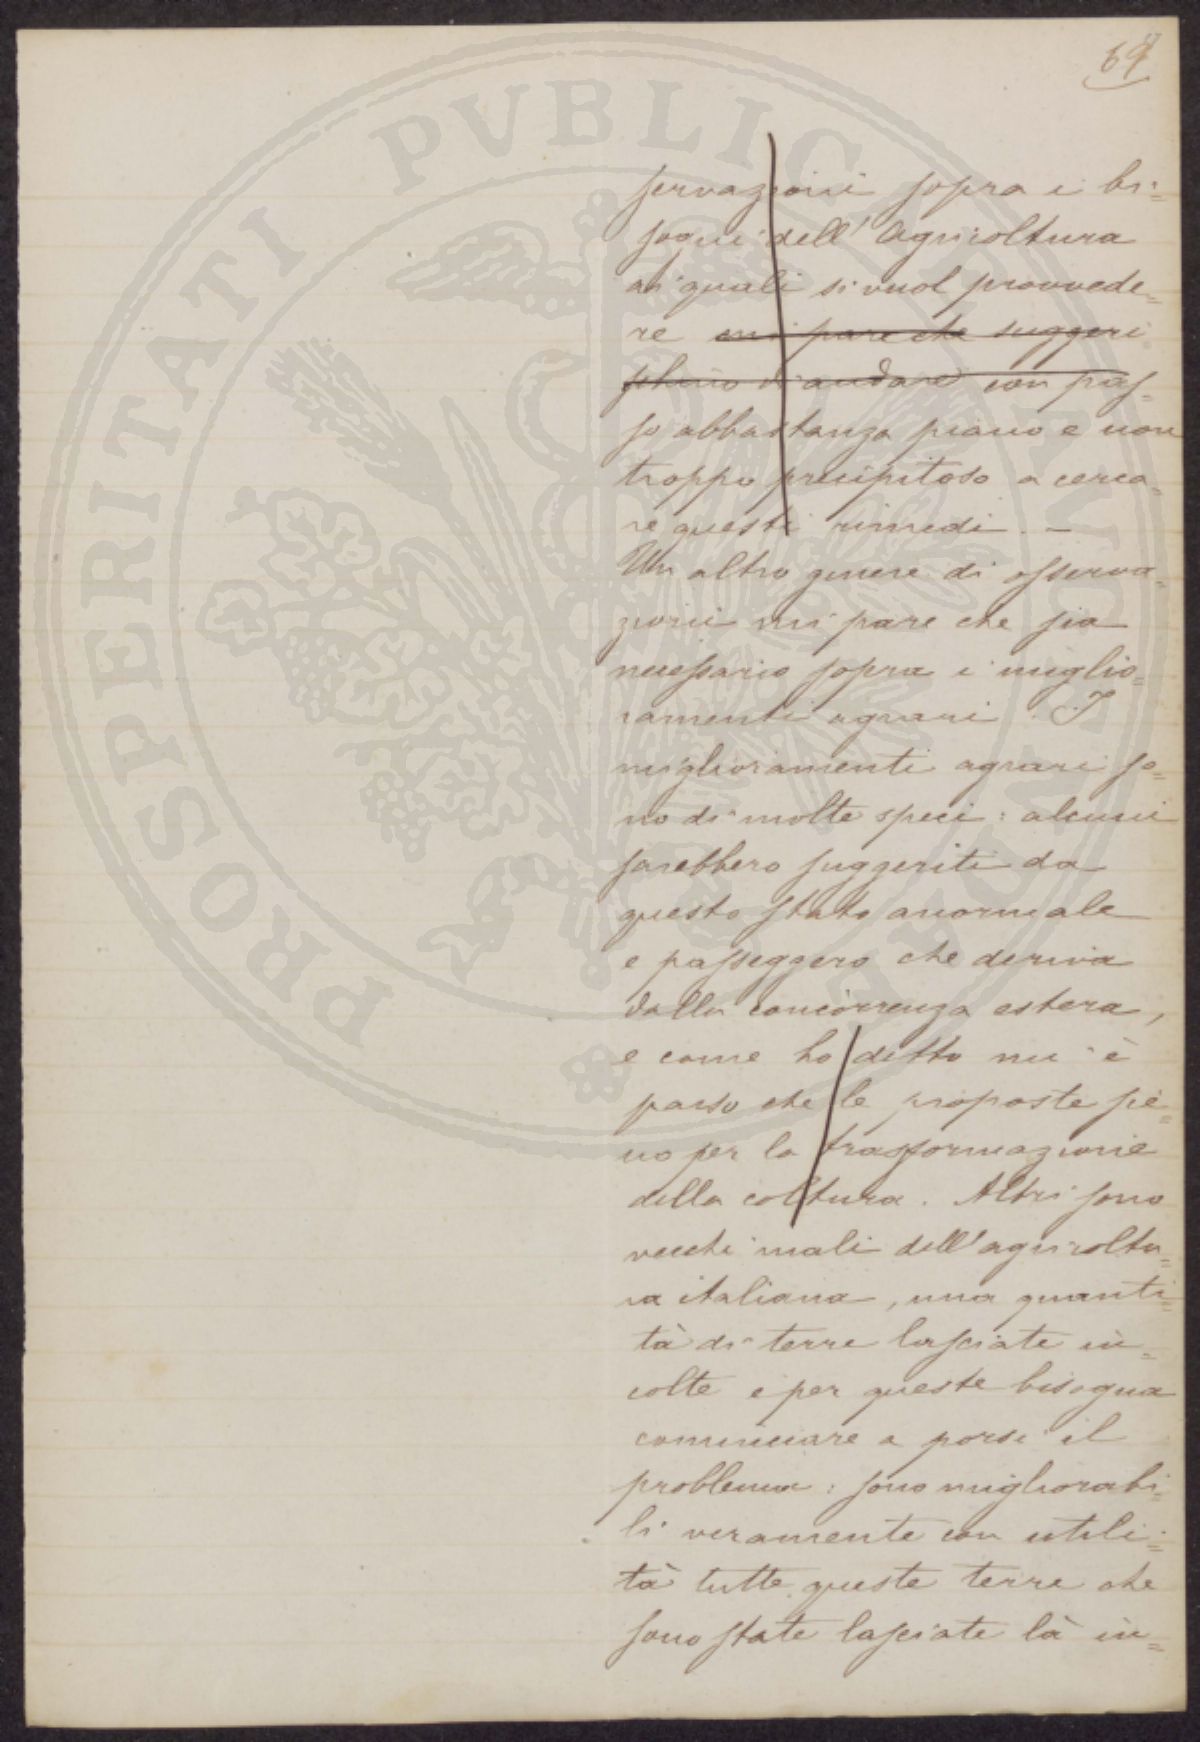 69
servazioni sopra i bi=
sogni dell'Agricoltura
ai quali si vuol provvede=
re mi pare che suggeri
schino di andare con pas=
so abbastanza piano e non
troppo precipitoso a cerca=
re questi rimedi. —
Un altro genere di osserva=
zioni mi pare che sia
necessario sopra i miglio=
ramenti agrari. I
miglioramenti agrari so=
no di molte speci: alcuni
sarebbero suggeriti da
questo stato anormale
e passeggero che deriva
dalla concorrenza estera,
e come ho detto mi è
parso che le proposte sie=
no per la trasformazione
della coltura. Altri sono
vecchi mali dell'agricoltu=
ra italiana, una quanti=
tà di terre lasciate in=
colte e per queste bisogna
cominciare a porsi il
problema: sono migliorabi=
li veramente con utili=
tà tutte queste terre che
sono state lasciate là in=
PROSPERITATI PVBLICAE AVGENDAE